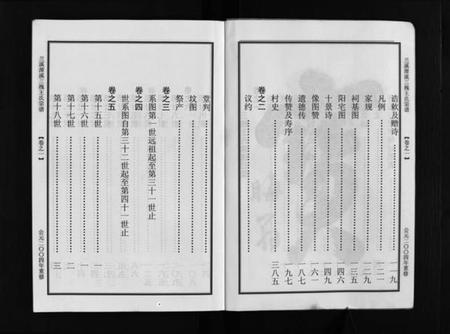 三槐王氏宗谱
【卷之一】
公元二〇〇四年重修
诰敕及赠诗……一九
凡例……一二一
家规……一二九
祠基图……一三五
阳宅图……一四六
十景诗……一四九
像图赞……一六一
道德传……一八七
传赞及寿序……一九七
村史……三八五
卷之二
议约……
堂判……
坟图……
祭产……
卷之三
系图第一世远祖起至第三十一世止
卷之四
世系图自第三十二世起至第四十一世止
卷之五
第十五世……一
第十六世……一
第十七世……二
第十八世……三
三槐王氏宗谱
【卷之一】
公元二〇〇四年重修